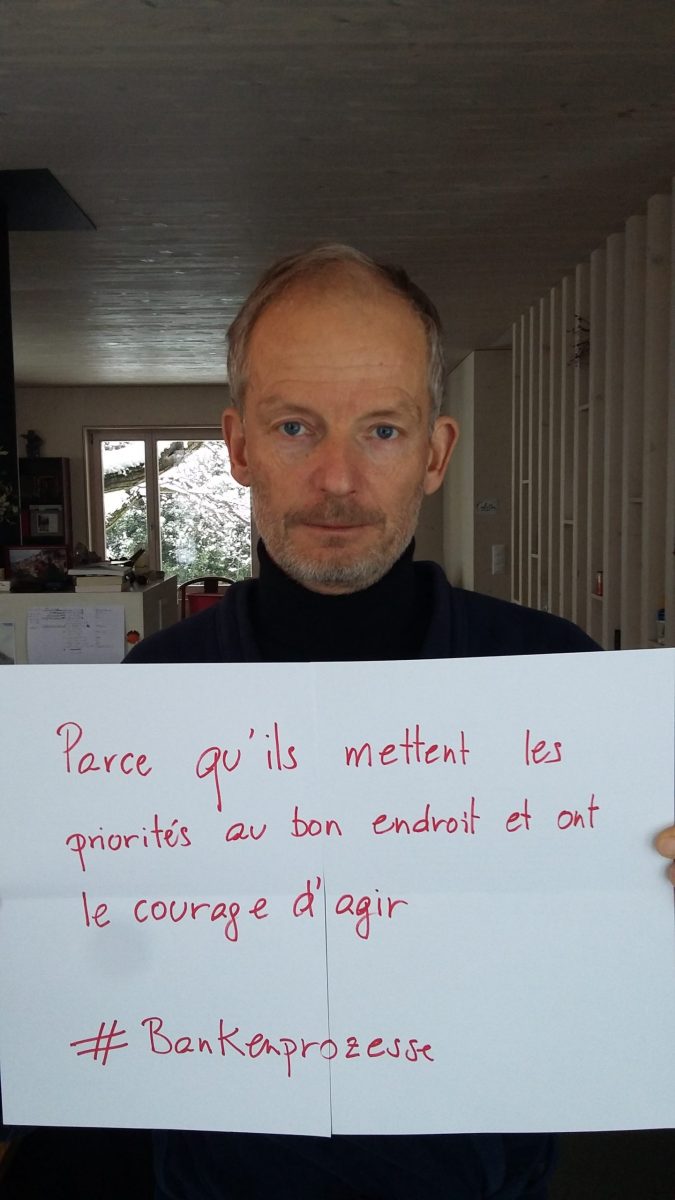 Parce qu'ils mettent les
priorités au bon endroit et ont
le courage d'agir
#Bankenprozesse